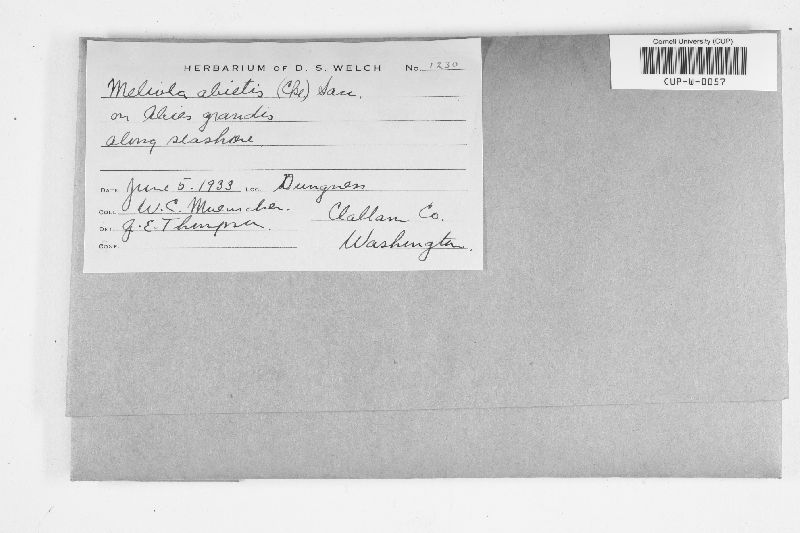 Cornell University (CUP)
CUP-W-0057
HERBARIUM OF D. S. WELCH No. 1230
Meliola abietis (Cke) Sacc.
on Abies grandis
along seashore
DATE June 5. 1933 LOC. Dungness
COLL. W.C. Muenscher. Clallam Co.
DET. J.E. Thompson. Washington.
CONF.